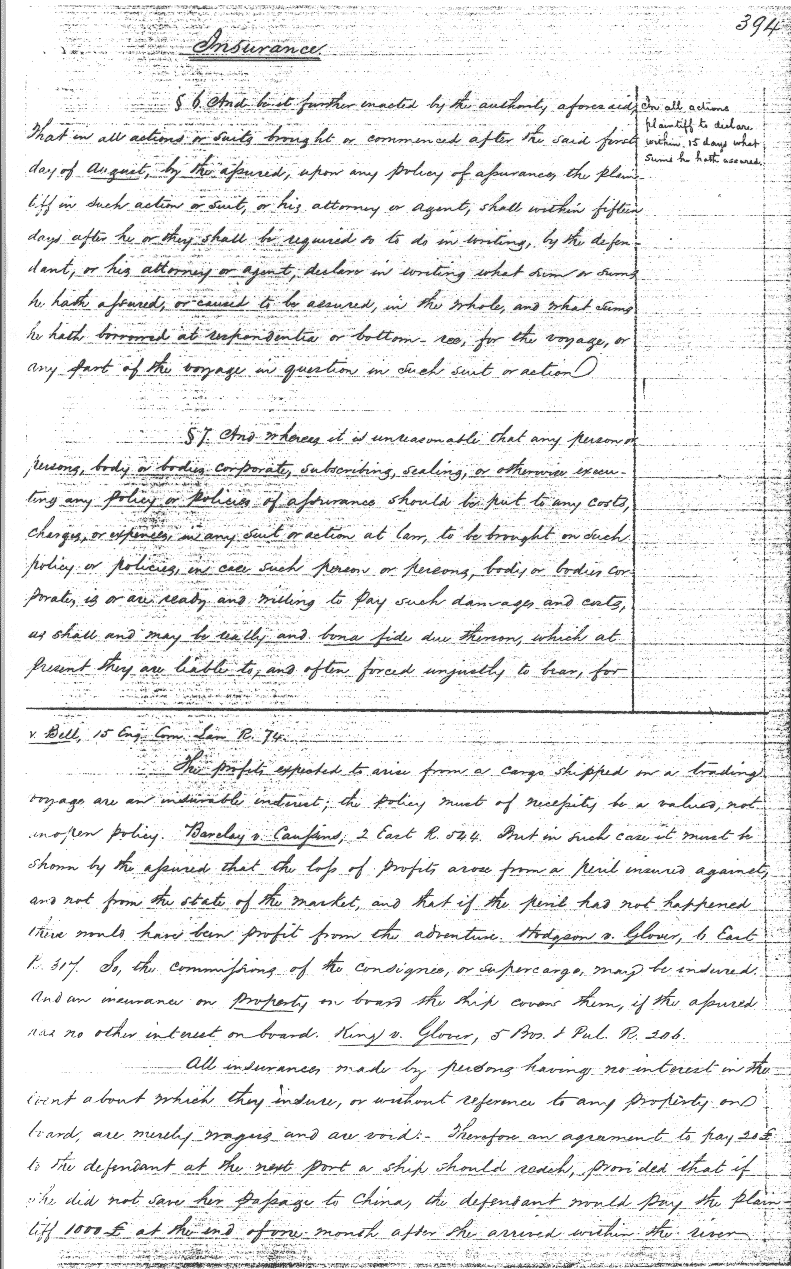 394
Insurance
§ 6. And be it further enacted by the authority aforesaid,
That in all actions or suits brought or commenced after the said first
day of August, by the assured, upon any policy of assurance, the plain-
tiff in such action or suit, or his attorney or agent, shall within fifteen
days after he or they shall be required so to do in writing, by the defen-
dant, or his attorney or agent, declare in writing what sum or sums
he hath assured, or caused to be assured, in the whole, and what sums
he hath borrowed at respondentia or bottom-ree, for the voyage, or
any part of the voyage in question in such suit or action
In all actions
plaintiff to declare
within 15 days what
sums he hath assured.
§ 7. And whereas it is unreasonable that any person or
persons, body or bodies corporate, subscribing, sealing, or otherwise execu-
ting any policy or policies of assurance should be put to any costs,
charges, or expences, in any suit or action at law, to be brought on such
policy or policies, in case such person or persons, body or bodies cor-
porate, is or are ready and willing to pay such damages and costs,
as shall and may be really and bona fide due thereon, which at
present they are liable to, and often forced unjustly to bear, for
v. Bell, 15 Eng. Com. Law R. 74.
The profits expected to arise from a cargo shipped on a trading
voyage are an insurable interest; the policy must of necessity be a valued, not
an open policy. Barclay v. Caussins, 2 East R. 544. But in such case it must be
shown by the assured that the loss of profits arose from a peril insured against,
and not from the state of the market, and that if the peril had not happened
there would have been profit from the adventure. Hodgson v. Glover, 6 East
R. 317. So, the commissions of the consignee, or supercargo, may be insured.
And an insurance on property on board the ship covers them, if the assured
has no other interest on board. King v. Glover, 5 Bos. & Pul. R. 206.
All insurances made by persons having no interest in the
event about which they insure, or without reference to any property on
board, are merely wagers and are void:- Therefore an agrament to pay 20£
to the defendant at the next port a ship should reach, provided that if
she did not save her passage to China, the defendant would pay the plain-
tiff 1000£ at the end of one month after she arrived within the river